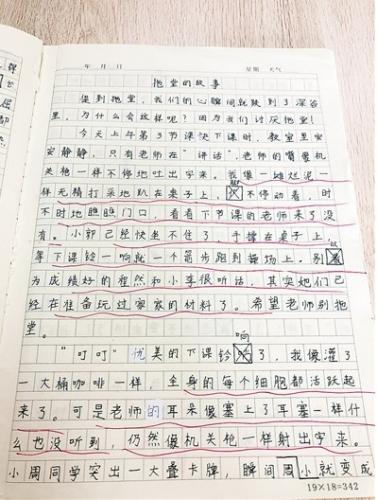 年 月 日 星期 天气
拖堂的故事
提到拖堂，我们的心瞬间就跌到了深谷
里，为什么会这样呢？因为我们讨厌拖堂！
今天上午第3节课快下课时，教室里安
安静静，只有老师在“讲话”，老师的嘴像机
关枪一样不停地吐出字来。我像一堆烂泥一
样无精打采地趴在桌子上，不停动着，时
不时地瞧瞧门口，看看下节课的老师来了没
有。小郭已经快坐不住了，手撑在桌子上，
等下课铃一响就一个箭步跑到操场上。别
为成绩好的崔然和小李很听话，其实她们已
经在准备玩过家家的材料了。希望老师别拖
堂。
响
“叮叮”优美的下课铃了，我像灌了
一大桶咖啡一样，全身的每个细胞都活跃起
来了。可是老师的耳朵像塞上了耳塞一样什
么也没听到，仍然像机关枪一样射出字来。
小周同学突出一大叠卡牌，瞬间周小就变成
19×18=342